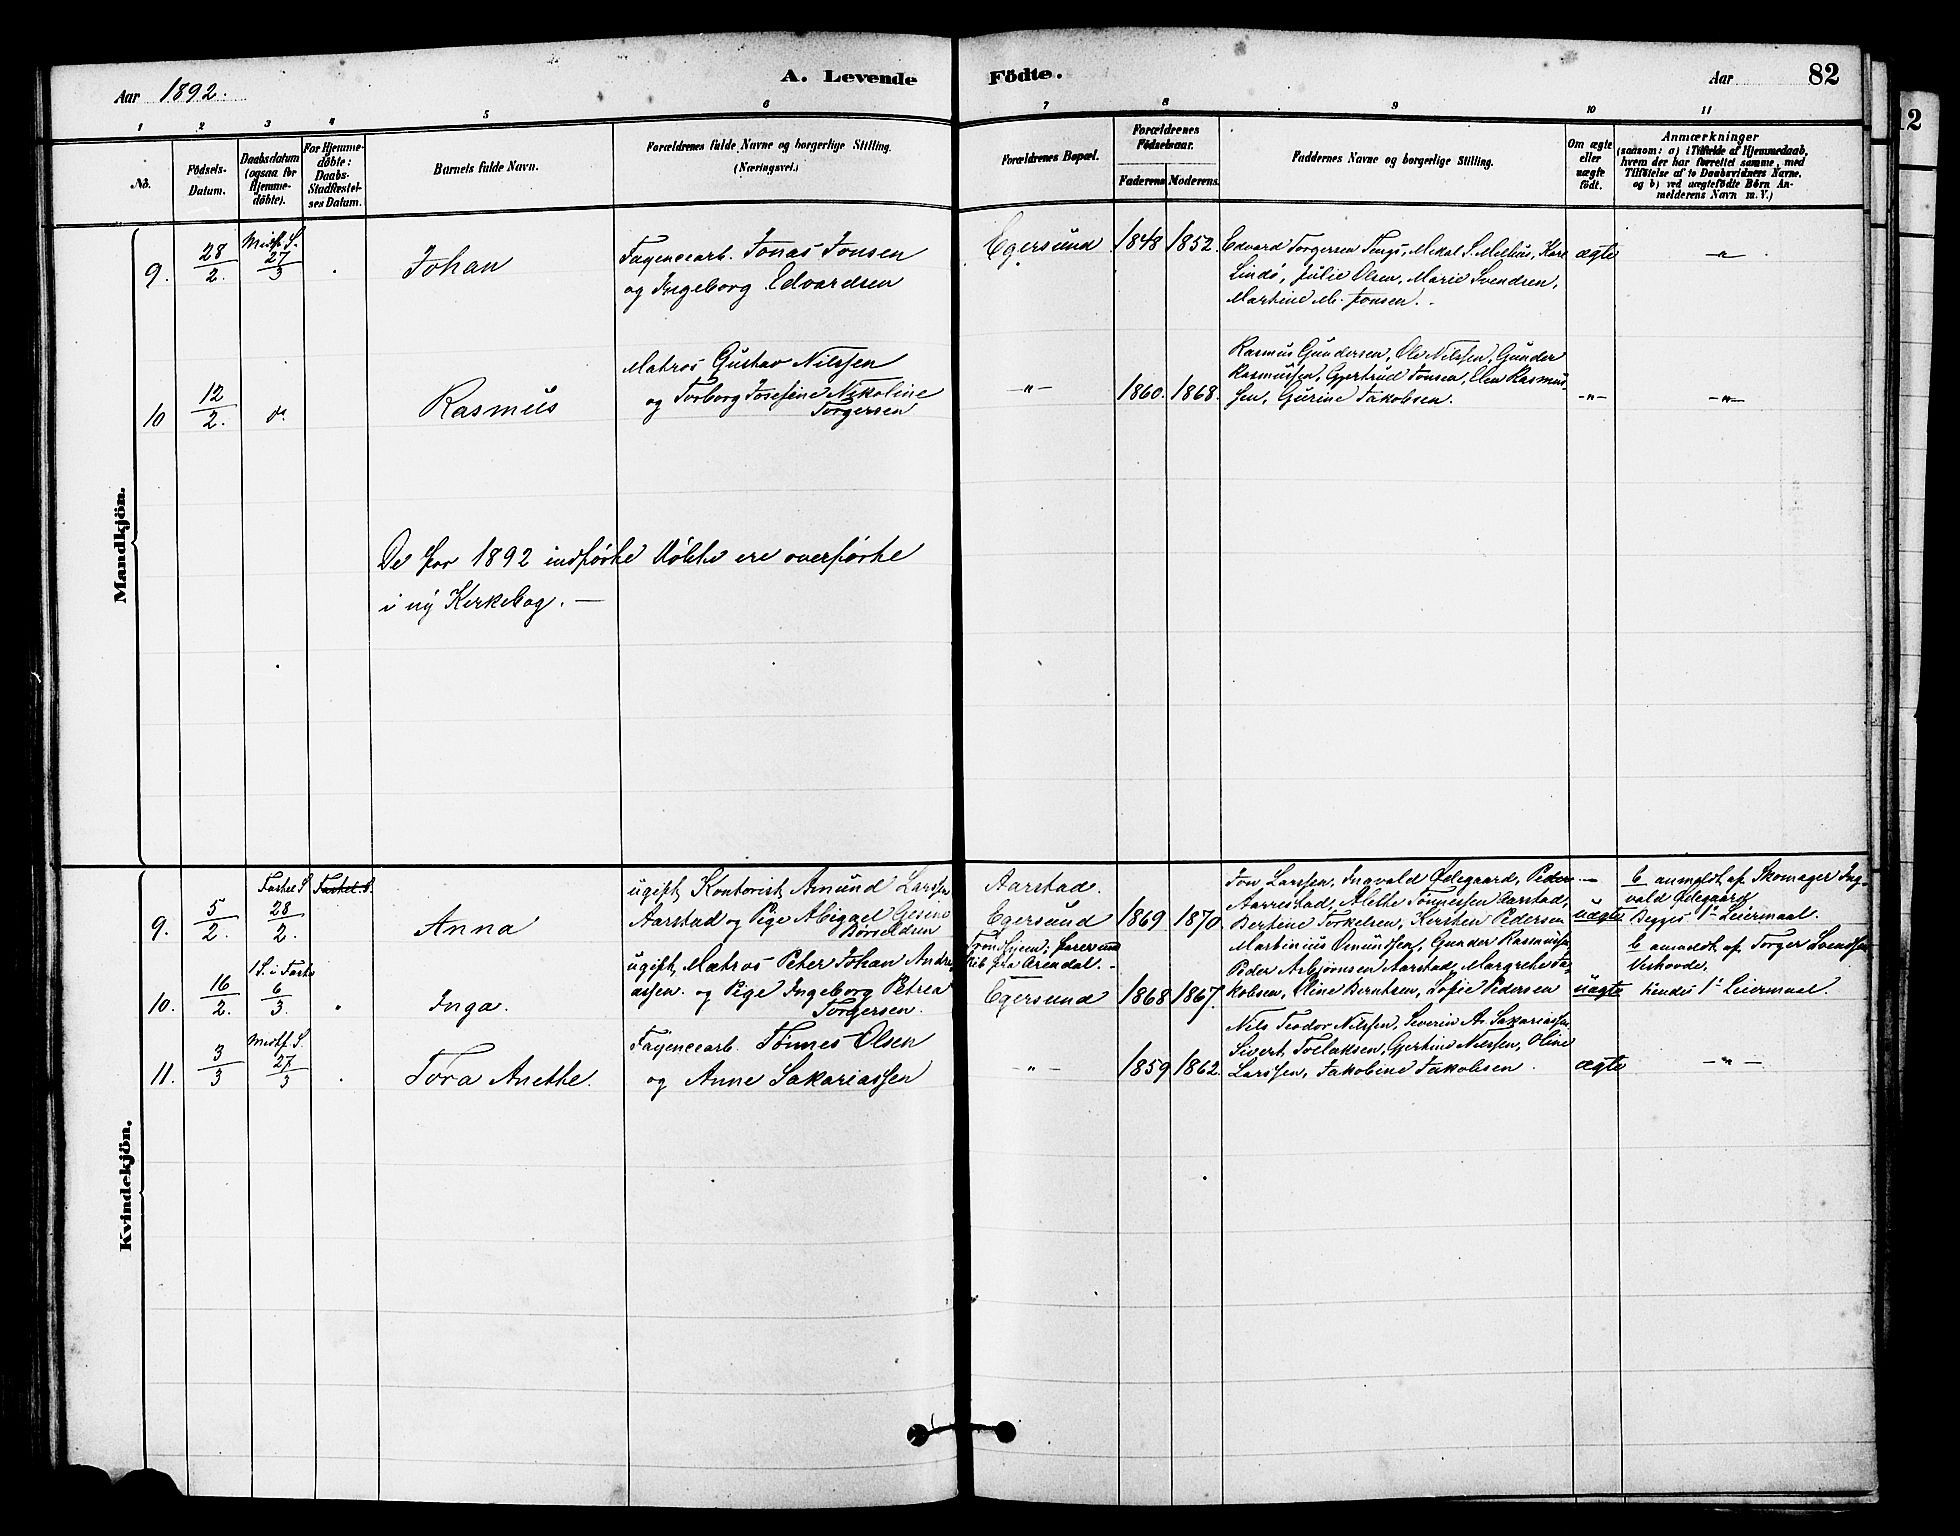 Aar 1892.
A. Levende Födte.
Aar
82
1 2 3 4 5 6 7 8 9 10 11
No.
Födsels-Datum.
Daabsdatum (ogsaa for Hjemmedöbte).
For Hjemmedöbte: Daabs-Stadfestelses Datum.
Barnets fulde Navn.
Forældrenes fulde Navne og borgerlige Stilling.
(Næringsvei.)
Forældrenes Bopæl.
Forældrenes Födselsaar.
Faderens Moderens.
Faddernes Navne og borgerlige Stilling.
Om ægte eller uægte födt.
Anmærkninger
(saasom: a) i Tilfælde af Hjemmedaab,
hvem der har forrettet samme, med
Tilföielse af to Daabsvidners Navne,
og b) ved uægtefödte Börn An-
melderens Navn m. V.)
Mandkjön.
9. 28/2. Midf. S. 27/3 Johan
Fayencearb. Jonas Jonsen
og Ingeborg Edvardsen
Egersund 1848 1852.
Edvard Torgersen Tengs, Mikal S. Melhus, Kare
Lindö, Julie Olsen, Marie Svendsen,
Martine M. Jonsen.
ægte —"—
10 12/2. do Rasmus
Matros Gustav Nilssen
og Torborg Josefine Nikoline
Torgersen
—"— 1860. 1868.
Rasmus Gundersen, Ole Nilssen, Gunder
Rasmussen, Gjertrud Jonsen, Elen Rasmus
sen, Gurine Jakobsen.
—"— —"—
De for 1892 indførte Døbte ere overførte
i ny Kirkebog. —
Kvindekjön.
9. 5/2. Fastel. S 28/2. Fastel. S. Anna
ugift, Kontorist Amund Larssen
Aarstad og Pige Abigael Gesine
Børseldsen
Aarstad.
Egersund 1869 1870
Jon Larssen, Ingvald Ødegaard, Peder
Aarrestad, Alette Tønnessen Aarstad,
Bertine Torkelsen, Kirsten Pedersen
uægte
b anmeldt af Skomager Ing-
vald Ødegaard
Begges 1ste Leiermaal.
10. 16/2. 1 S. i Faste 6/3. Inga.
ugift, Matros Peter Johan Andre
assen. og Pige Ingeborg Petrea
Torgersen.
Trondhjem; farer med
Skib fra Arendal.—
Egersund 1868 1867.
Martinius Omundsen, Gunder Rasmussen,
Peder Asbjørnsen Aarstad, Margrethe Ja-
kobsen, Oline Berntsen, Sofie Pedersen
uægte
b anmeldt af Torger Svendsen
Veshovde.
hendes 1ste Leiermaal.
11. 3/3 Midf. S. 27/3 Tora Anethe.
Fayencearb. Tønnes Olsen
og Anne Sakariassen
—"— 1859 1862.
Nils Teodor Nilssen, Severin A. Sakariassen,
Sivert Tollaksen, Gjertine Nilssen, Oline
Larssen, Jakobine Jakobsen.
ægte —"—
12